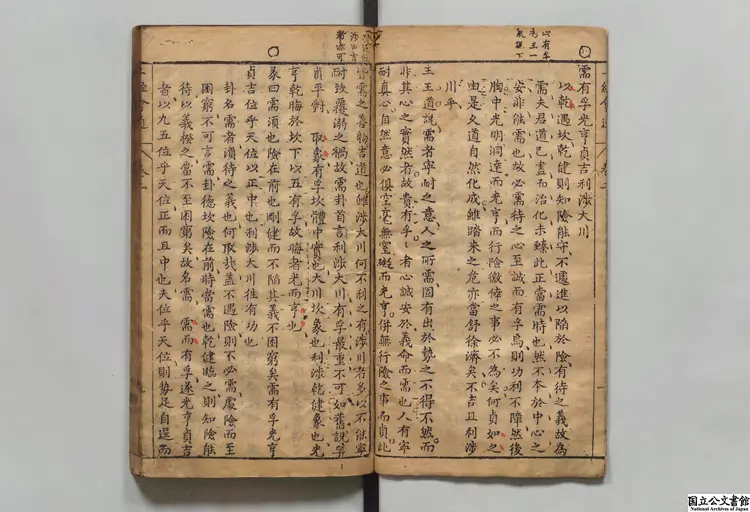 需有孚光亨貞吉利涉大川
以乾遇坎乾健則知險能守不遽進以陷於險有待之義故為
需夫君道已盡而治化未臻此正當需時也然不本於中心之
安非能需也故必需待之心至誠而有孚焉則功利不障然後
胸中光明洞達而光亨而行險徼倖之事必不為矣何貞如之
由是乂道自然化成雖蹈來之危亦當舒徐濟矣不吉且利涉
川乎
王王道說需者寧耐之意人之所需固有出於勢之不得不然而
非其心之實然者故貴有孚孚者心誠安於義命而需也人有寧
耐真心自然意必俱空毫無窒礙而光亨併無行險之事而貞此
皆需之善物吉道也雖涉大川何不利之有涉川者多以不能寧
耐致覆溺之禍故需卦首言利涉大川有孚最重不可如舊說孚
貞平對 取象有孚坎體中實也大川坎象也利涉乾健象也光
亨乾晦於坎下以五有孚故晦者光而亨也
彖曰需須也險在前也剛健而不陷其義不困窮矣需有孚光亨
貞吉位乎天位以正中也利涉大川往有功也
卦名需者須待之義也何取哉蓋不遇險則不必需處險而至
困窮不可言需卦德坎險在前時當需也乾健臨之則知險能
待以義揆之當不至困窮矣故名需 需而有孚遂光亨貞吉
者以九五位乎天位正而且中也夫位乎天位則勢足自逞而
国立公文書館
National Archives of Japan